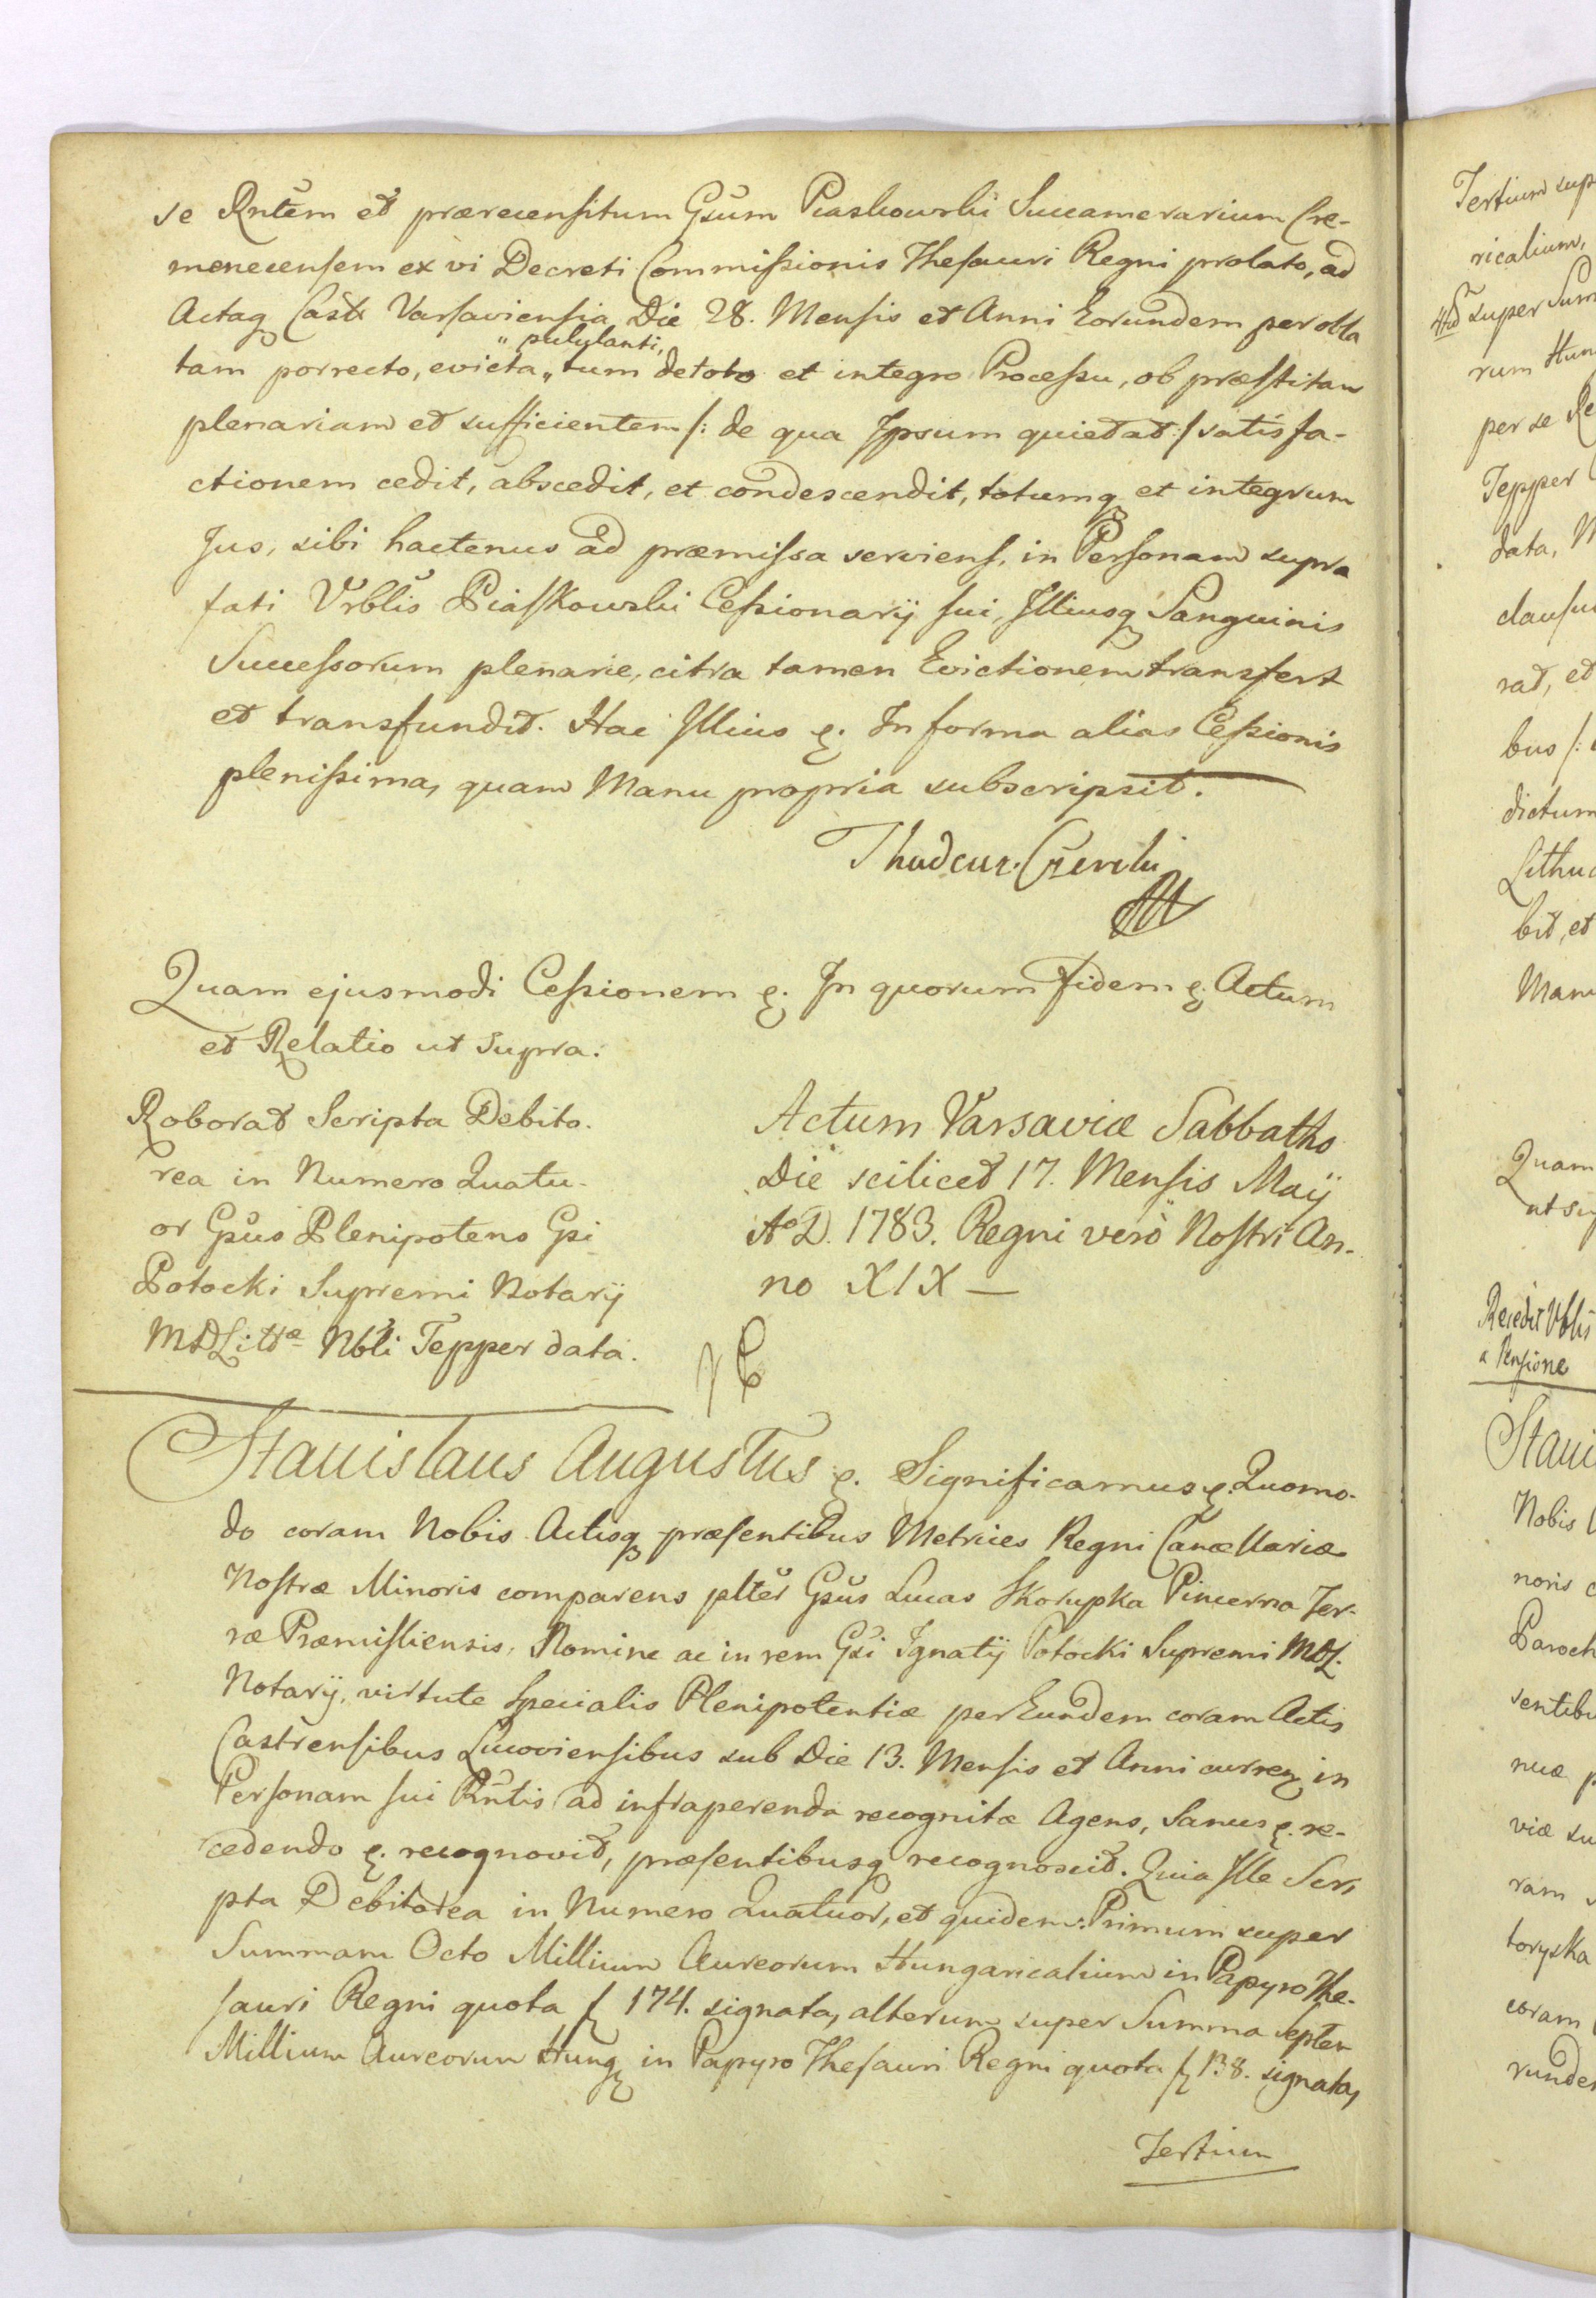 se Rntem et præreensitum Gsum Piaskowski Succamerarium Cre-
menecensem ex vi Decreti Commissionis Thesauri Regni prolato, ad
Actaq Castr Varsaviensia Die 28. Mensis et Anni Eorundem per obla
" pululanti,
tam porrecto, evicta „ tum de toto et integro Processu, ob præstitam
plenariam et sufficientem /: de qua Ipsum quietat :/ satisfa-
ctionem cedit, abscedit, et condescendit, totumq et integrum
Jus, sibi hactenus ad præmissa serviens, in Personam supra
fati Urblis Piaskowski Cessionarij sui, Illiusq Sanguinis
Successorum plenarie, citra tamen Evictionem transfert
et transfundit. Hac Illius &. In forma alias Cessionis
plenissima, quam Manu propria subscripsit.
Quam ejusmodi Cessionem &. In quorum Fidem &. Actum
et Relatio ut Supra.
Roborat Scripta Debito-
rea in Numero Quatu-
or Gsus Plenipotens Gsi
Potocki Supremi Notarij
MDLittæ Nbli Tepper data.
Actum Varsaviæ Sabbatho
Die scilicet 17. Mensis Maij
Ao D. 1783. Regni vero Nostri An-
no XIX —
Stanislaus Augustus &. Significamus &. Quomo-
do coram Nobis Actisq præsentibus Metrices Regni Cancellariæ
Nostræ Minoris comparens plter Gsus Lucas Skorupka Pincerna Ter-
ræ Præmisliensis, Nomine ac in rem Gsi Ignatij Potocki Supremi MDL.
Notarij, virtute Specialis Plenipotentiæ per Eundem coram Actis
Castrensibus Lucoviensibus sub Die 13. Mensis et Anni curren in
Personam sui Rntis ad infra perenda recognitæ Agens, Sanus &. re-
cedendo &. recognovit, præsentibusq recognoscit. Quia Ille Scri
pta Debitorea in Numero Quatuor, et quidem: Primum super
Summam Octo Millium Aureorum Hungaricalium in Papyro The-
sauri Regni quota f 174. signata, alterum super Summa Septem
Millium Aureorum Hung in Papyro Thesauri Regni quota f 138. signata,
Tertium
Tertium sup
ricalium,
super Sum
rum Hun
per se Re
Tepper
data,
clausu
rat, et
bus /:
dictum
Lithua
bit, et
Manu
Quam
ut su
Recedit Vblis
a Pensione
Stani
Nobis
noris
Paroch
sentibu
nuæ p
viæ su
ram
toryska
coram
runde